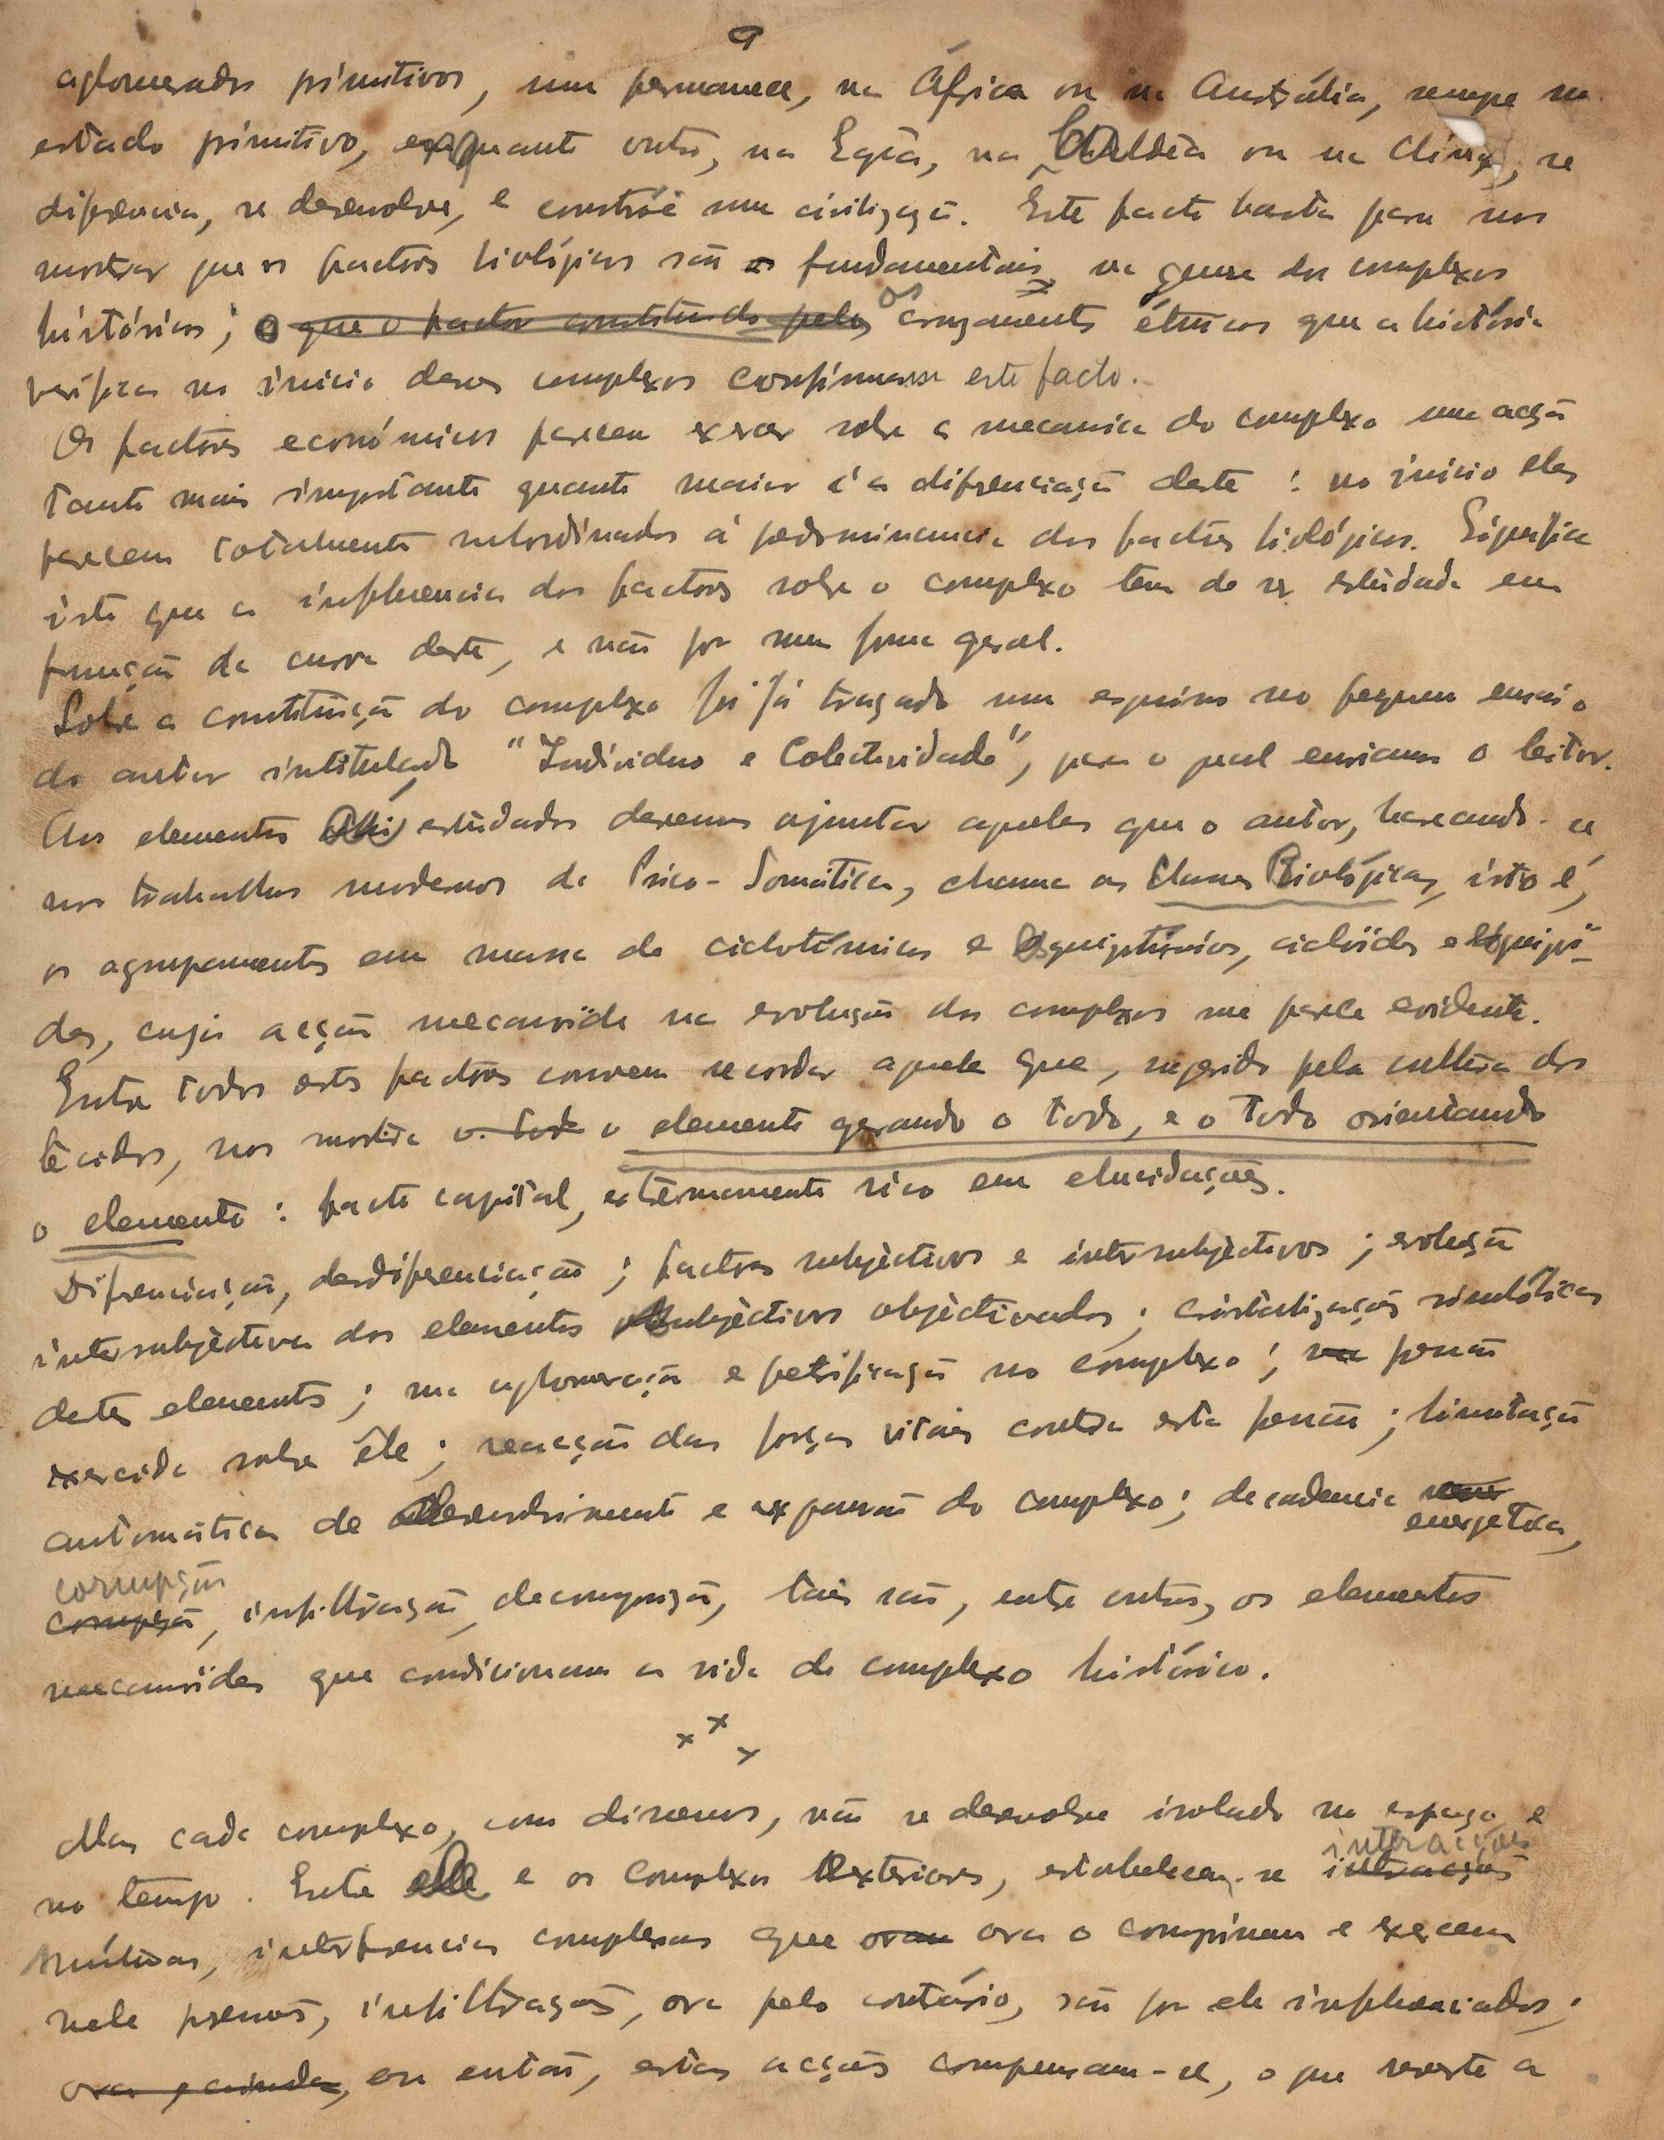 9
aglomerados primitivos, um permanece, na África ou na Austrália, sempre no
estado primitivo, enquanto outro, no Egito, na Caldêa ou na China, se
diferencia, se desenvolve, e constróe uma civilização. Este facto basta para nos
mostrar que os factores biológicos são os fundamentais na genese dos complexos
históricos; o que o factor constituido pelos os cruzamentos étnicos que a história
verifica no inicio desses complexos confirmam este facto.
Os factores económicos parecem exercer sobre a mecanica do complexo uma acção
tanto mais importante quanto maior é a diferenciação deste: no início eles
parecem totalmente subordinados á predominancia dos factores biológicos. Significa
isto que a influencia dos factores sobre o complexo tem de ser estudada em
função da curva deste, e não por uma forma geral.
Sobre a constituição do complexo foi já traçado um esquisso no pequeno ensaio
do autor intitulado "Individuo e Colectividade", para o qual enviamos o leitor.
Aos elementos ahi estudados devemos ajuntar aqueles que o autor, baseando-se
nos trabalhos modernos de Psico-Somática, chama as Classes Biológicas, isto é,
os agrupamentos em massa de ciclotímicos e esquizotímicos, ciclóides e esquizói-
des, cuja acção mecanóide na evolução dos complexos me parece evidente.
Entre todos estes factores convem recordar aquele que, sugerido pela cultura dos
tecidos, nos mostra o todo o elemento gerando o todo, e o todo orientando
o elemento: facto capital, extremamente rico em elucidações.
Diferenciação, desdiferenciação; factores subjèctivos e intersubjèctivos; evolução
intersubjèctiva dos elementos subjèctivos objèctivados; cristalização simbólica
destes elementos; sua aglomeração e petrificação no complexo; sua pressão
exercida sobre êle; reacção das forças vitais contra esta pressão; limitação
automática de desenvolvimento e expansão do complexo; decadencia
energetica,
corrupção
corrupção, infiltração, decomposição, tais são, entre outros, os elementos
mecanóides que condicionam a vida do complexo histórico.
x x x
Mas cada complexo, como dissemos, não se desenvolve isolado no espaço e
interacções
no tempo. Entre ele e os complexos exteriores, estabelecem-se interacções
mútuas, interferencias complexas que oram ora o comprimem e exercem
nele pressões, infiltrações, ora pelo contrário, são por ele influenciados;
ora, e ainda, ou então, estas acções compensam-se, o que reveste a